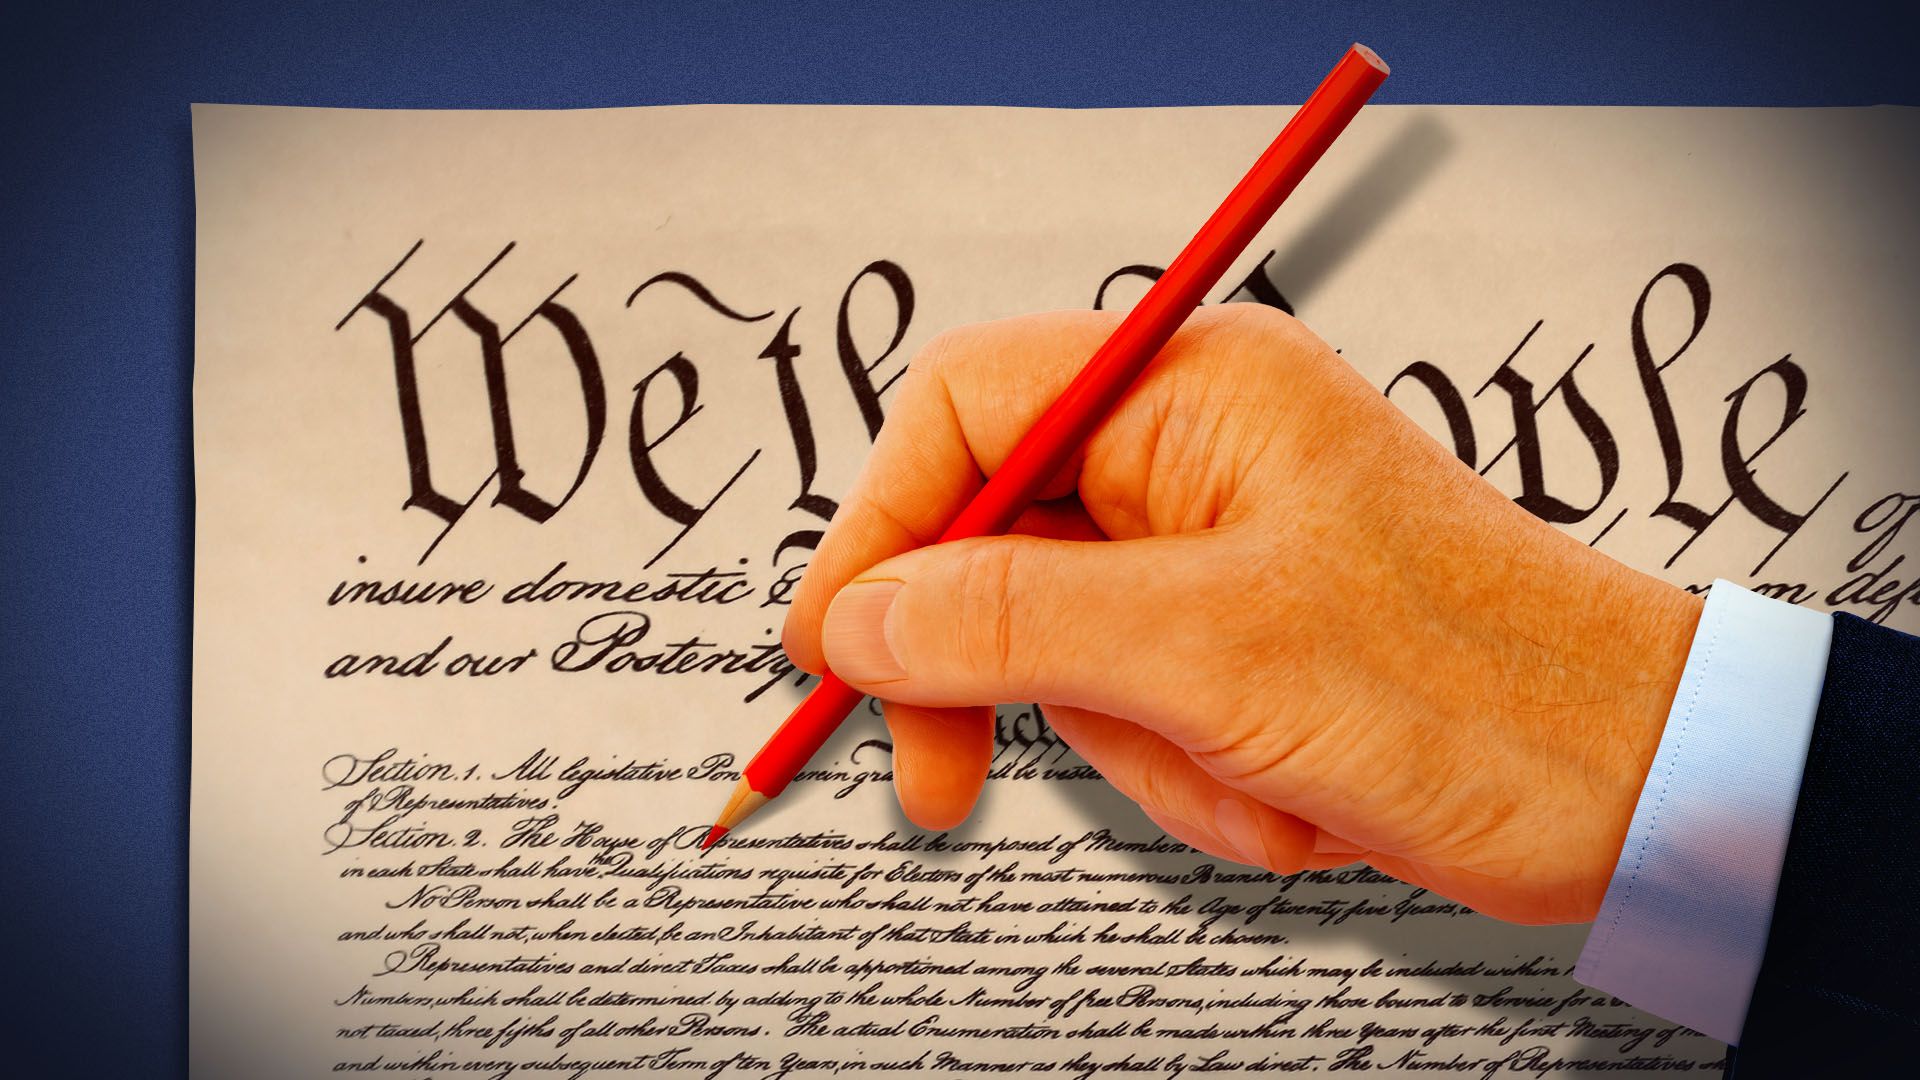 We the People of
insure domestic
and our Posterity,
Section. 1. All legislative Pow herein gra all be vested
of Representatives.
Section. 2. The House of Representatives shall be composed of Members
in each State shall have the Qualifications requisite for Electors of the most numerous Branch of the State
No Person shall be a Representative who shall not have attained to the Age of twenty five Years,
and who shall not, when elected, be an Inhabitant of that State in which he shall be chosen.
Representatives and direct Taxes shall be apportioned among the several States which may be included within
Numbers, which shall be determined by adding to the whole Number of free Persons, including those bound to Service for a
not taxed, three fifths of all other Persons. The actual Enumeration shall be made within three Years after the first Meeting of
and within every subsequent Term of ten Years, in such Manner as they shall by Law direct. The Number of Representatives